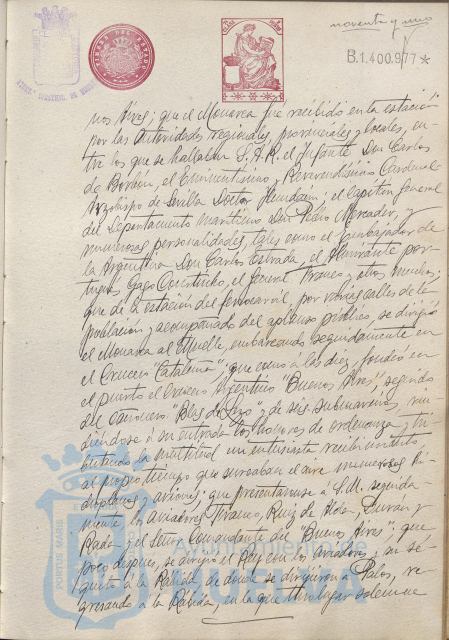 noventa y uno
B.1.400.977 *
TIMBRE DEL ESTADO
nos Aires; que el Monarca fué recibido en la estación
por las Autoridades regionales, provinciales y locales, en-
tre los que se hallaban S.A.R. el Infante Don Carlos
de Borbón, el Eminentísimo y Reverendísimo Cardenal
Arzobispo de Sevilla Doctor Ilundain; el Capitán General
del Departamento marítimo Don Pedro Mercader, y
numerosas personalidades, tales como el Embajador de
la Argentina Don Carlos Estrada, el Almirante por-
tugués Gago Coutinho, el General Franco y otros muchos;
que de la estación del ferrocarril, por varias calles de la
población y acompañado del aplauso público, se dirigió
el Monarca al Muelle, embarcando seguidamente en
el Crucero "Cataluña"; que como a las diez, fondeó en
el puerto el Crucero Argentino "Buenos Aires", seguido
del cañonero "Blas de Lezo" y de seis submarinos, rin-
diéndose a su entrada los honores de ordenanza y tri-
butando la multitud un entusiasta recibimiento
al propio tiempo que surcaban el aire numerosos hi-
droplanos y aviones; que presentáronse a S.M. seguida-
mente los aviadores Franco, Ruiz de Alda, Durán y
Rada y el Señor Comandante del "Buenos Aires"; que
poco después, se dirigió el Rey con los aviadores y su sé-
quito a la Rábida, de donde se dirigieron a Palos, re-
gresando a la Rábida, en la que tuvo lugar solemne
PORTUS MARIS
Ayuntamiento de
HUELVA